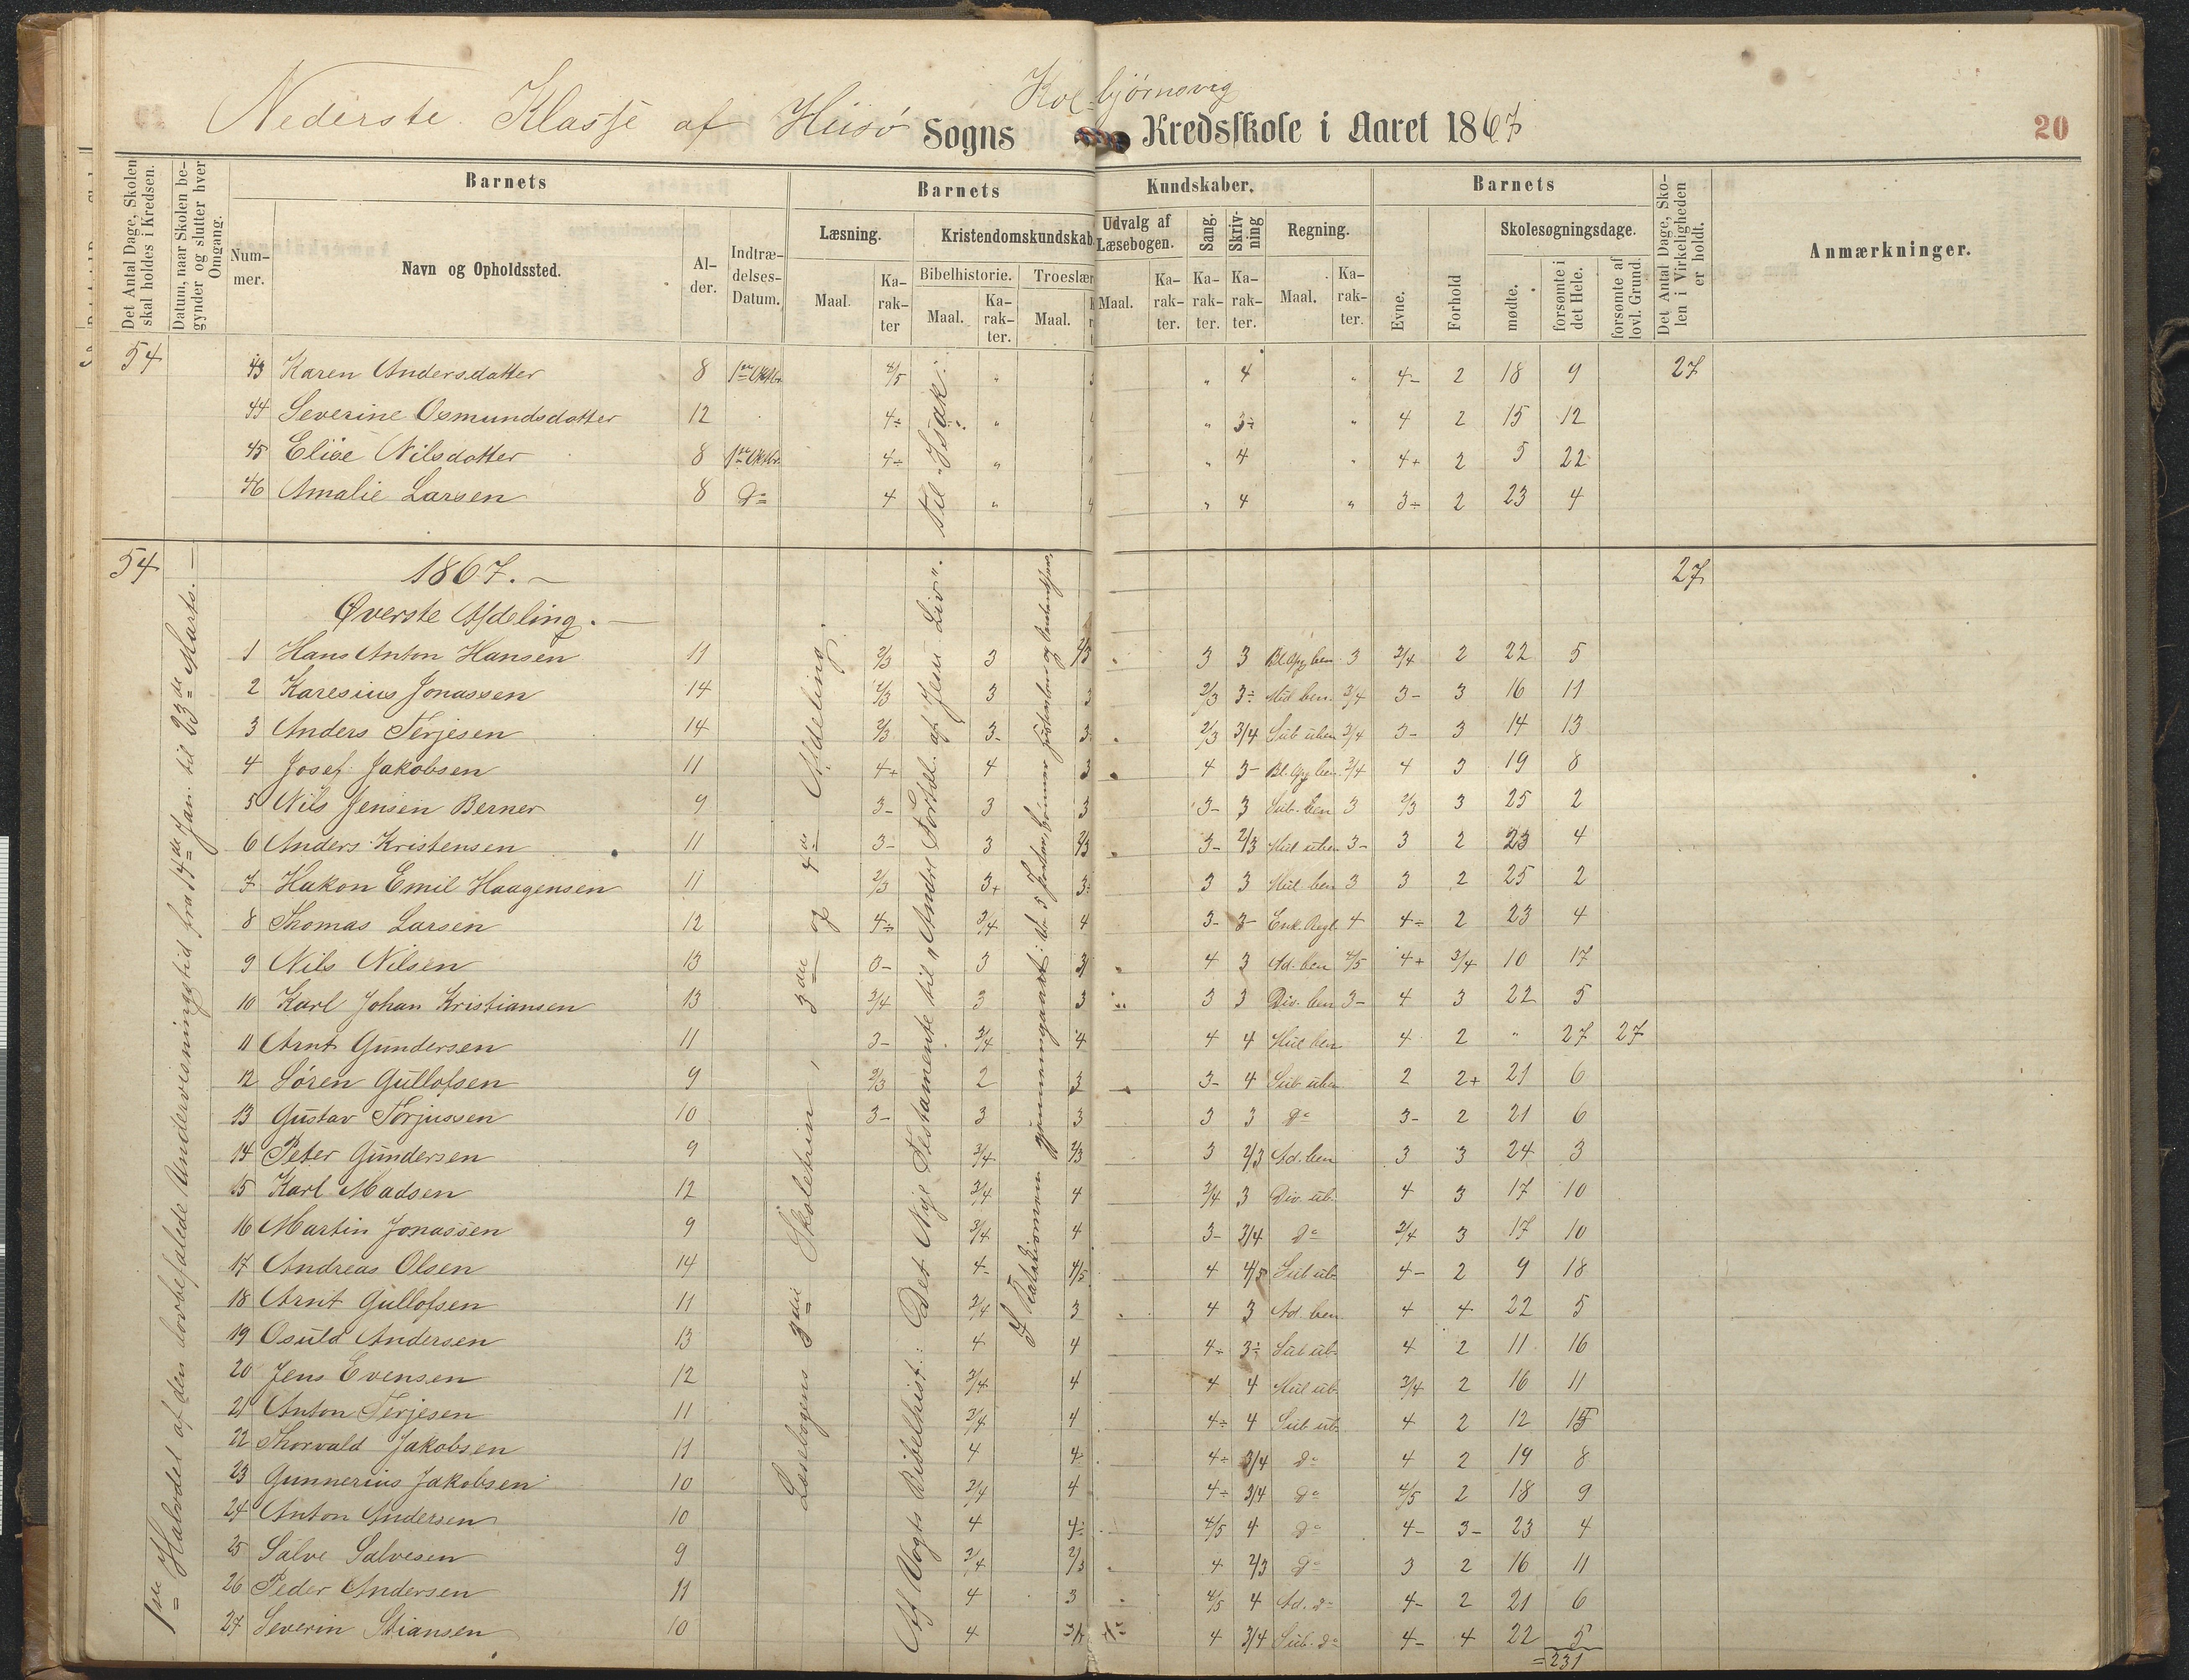 Kolbjørnsvig
Nederste Klasse af Hiisø Sogns Kredsskole i Aaret 1867
20
Det Antal Dage, Skolen skal holdes i Kredsen.
Datum, naar Skolen begynder og slutter hver Omgang.
Barnets
Nummer.
Navn og Opholdssted.
Alder.
Indtrædelses-Datum.
Barnets Kundskaber.
Læsning.
Maal.
Karakter
Kristendomskundskab
Bibelhistorie.
Maal.
Karakter.
Troeslær
Maal.
Udvalg af Læsebogen.
Maal.
Karakter.
Sang.
Karakter.
Skrivning
Karakter.
Regning.
Maal.
Karakter.
Barnets
Evne.
Forhold
Skolesøgningsdage.
mødte.
forsømte i det Hele.
forsømte af lovl. Grund.
Det Antal Dage, Skolen i Virkeligheden er holdt.
Anmærkninger.
54 43 Karen Andersdatter 8 1ste Oktbr. 4/5 " " 4 " 4- 2 18 9 27
44 Severine Osmundsdatter 12 4÷ " " 3÷ " 4 2 15 12
45 Elise Nilsdatter 8 1ste Oktbr. 4÷ " " 4 " 4+ 2 5 22
46 Amalie Larsen 8 do 4 " " 4 " 3÷ 2 23 4
til "Isak".
54 1867. 27
Øverste Afdeling.
1ste Halvdel af den lovbefalede Undervisningstid fra 14de Jan. til 23de Marts.
Læsebogens 3die Skoletrin, 3die og 4de Afdeling.
Af Vogts Bibelhist.: Det Nye Testamente til "Andre Fortæl. af Jesu Liv".
1 Hans Anton Hansen 11 2/3 3 2/3 3 3 Bl. Opg. ben 3 3/4 2 22 5
2 Karesius Jonassen 14 2/3 3 3 2/3 3÷ Mul ben. 3/4 3- 3 16 11
3 Anders Terjesen 14 2/3 3- 3- 2/3 3/4 Sub uben 3/4 3- 3 14 13
4 Josef Jakobsen 11 4+ 4 3 4 3- Bl. Opg ben. 3/4 4 3 19 8
5 Nils Jensen Berner 9 3- 3 3 3- 3 Sub. ben 3 2/3 3 25 2
6 Anders Kristensen 11 3- 3 2/3 3- 2/3 Mul uben 3- 3 2 23 4
7 Hakon Emil Haagensen 11 2/3 3+ 3÷ 3 3 Mul. ben 3 3 2 25 2
8 Thomas Larsen 12 4÷ 3/4 4 3- 3- Enk. Regl. 4 4÷ 2 23 4
9 Nils Nilsen 13 3- 3 3 4 3 Ad. ben 4/5 4+ 3/4 10 17
10 Karl Johan Kristiansen 13 3/4 3 3 3 3 Div. ben 3- 4 3 22 5
11 Arnt Gundersen 11 3- 3/4 4 4 4 Mul ben 4 2 " 27 27
12 Søren Gullofsen 9 2/3 2 3 3- 4 Sub uben 2 2+ 21 6
13 Gustav Torjussen 10 3- 3 3 3 3 do 3- 2 21 6
14 Peter Gundersen 9 3/4 2/3 3 2/3 Ad. ben 3 3 24 3
15 Karl Madsen 12 3/4 4 3/4 3 Div. ub. 4 3 17 10
16 Martin Jonassen 9 3/4 4 3- 3/4 do 3/4 3 17 10
17 Andreas Olsen 14 4- 4/5 4 4/5 Sub ub. 4- 2 9 18
18 Arnt Gullofsen 11 3/4 3 4 3 Ad. ben 4 4 22 5
19 Osuld Andersen 13 4 4 4÷ 3÷ Sub ub. 4 2 11 16
20 Jens Evensen 12 3/4 4 4 4 Mul ub. 3/4 2 16 11
21 Anton Terjesen 11 3/4 4 4÷ 4 Sub ub. 4 2 12 15
22 Thorvald Jakobsen 11 4 4 4÷ 3/4 do 4 2 19 8
23 Gunnerius Jakobsen 10 3/4 4 4÷ 3/4 do 4/5 2 18 9
24 Anton Andersen 10 4 4÷ 4/5 4 do 4- 3- 23 4
25 Salve Salvesen 9 3/4 2/3 4 2/3 do 3 2 16 11
26 Peder Andersen 11 4 3 4/5 4 Ad. do 4- 2 21 6
27 Severin Stiansen 10 4 3/4 4 3/4 Sub. do 4- 4 22 5
=231